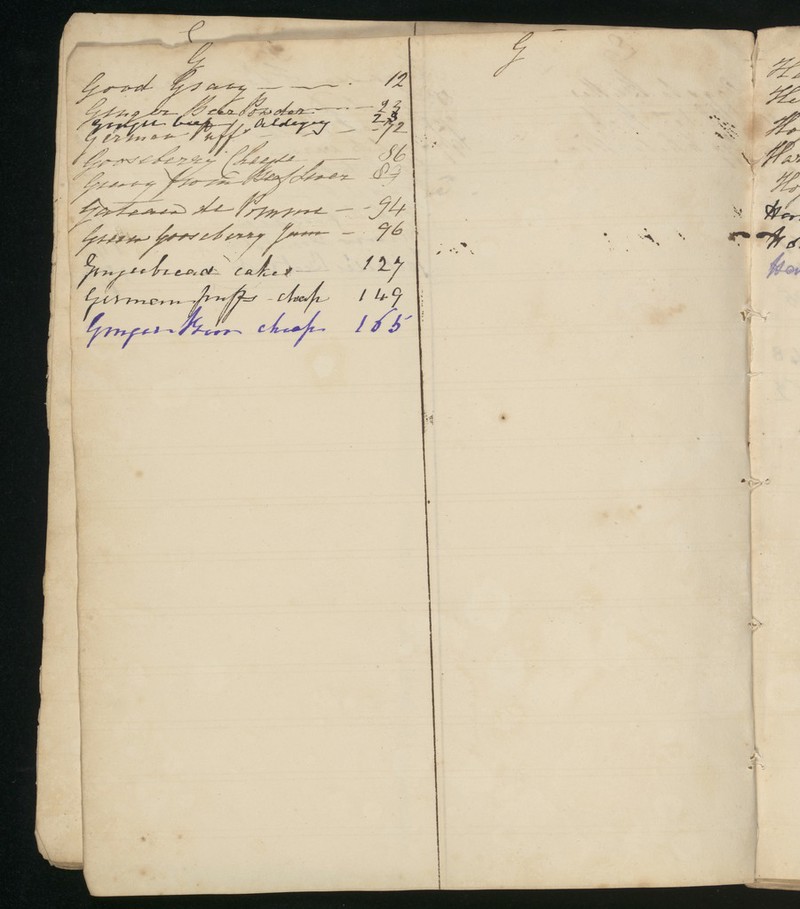 G
Good Gravy 12
Ginger Beer Powder 23
Ginger beer 23
German Puffs 72
Gooseberry Cheese 86
Gravy from 87
Gateau de Pomme 94
Green Gooseberry Jam 96
Gingerbread cakes 127
German puffs cheap 149
Ginger Beer cheap 165
G